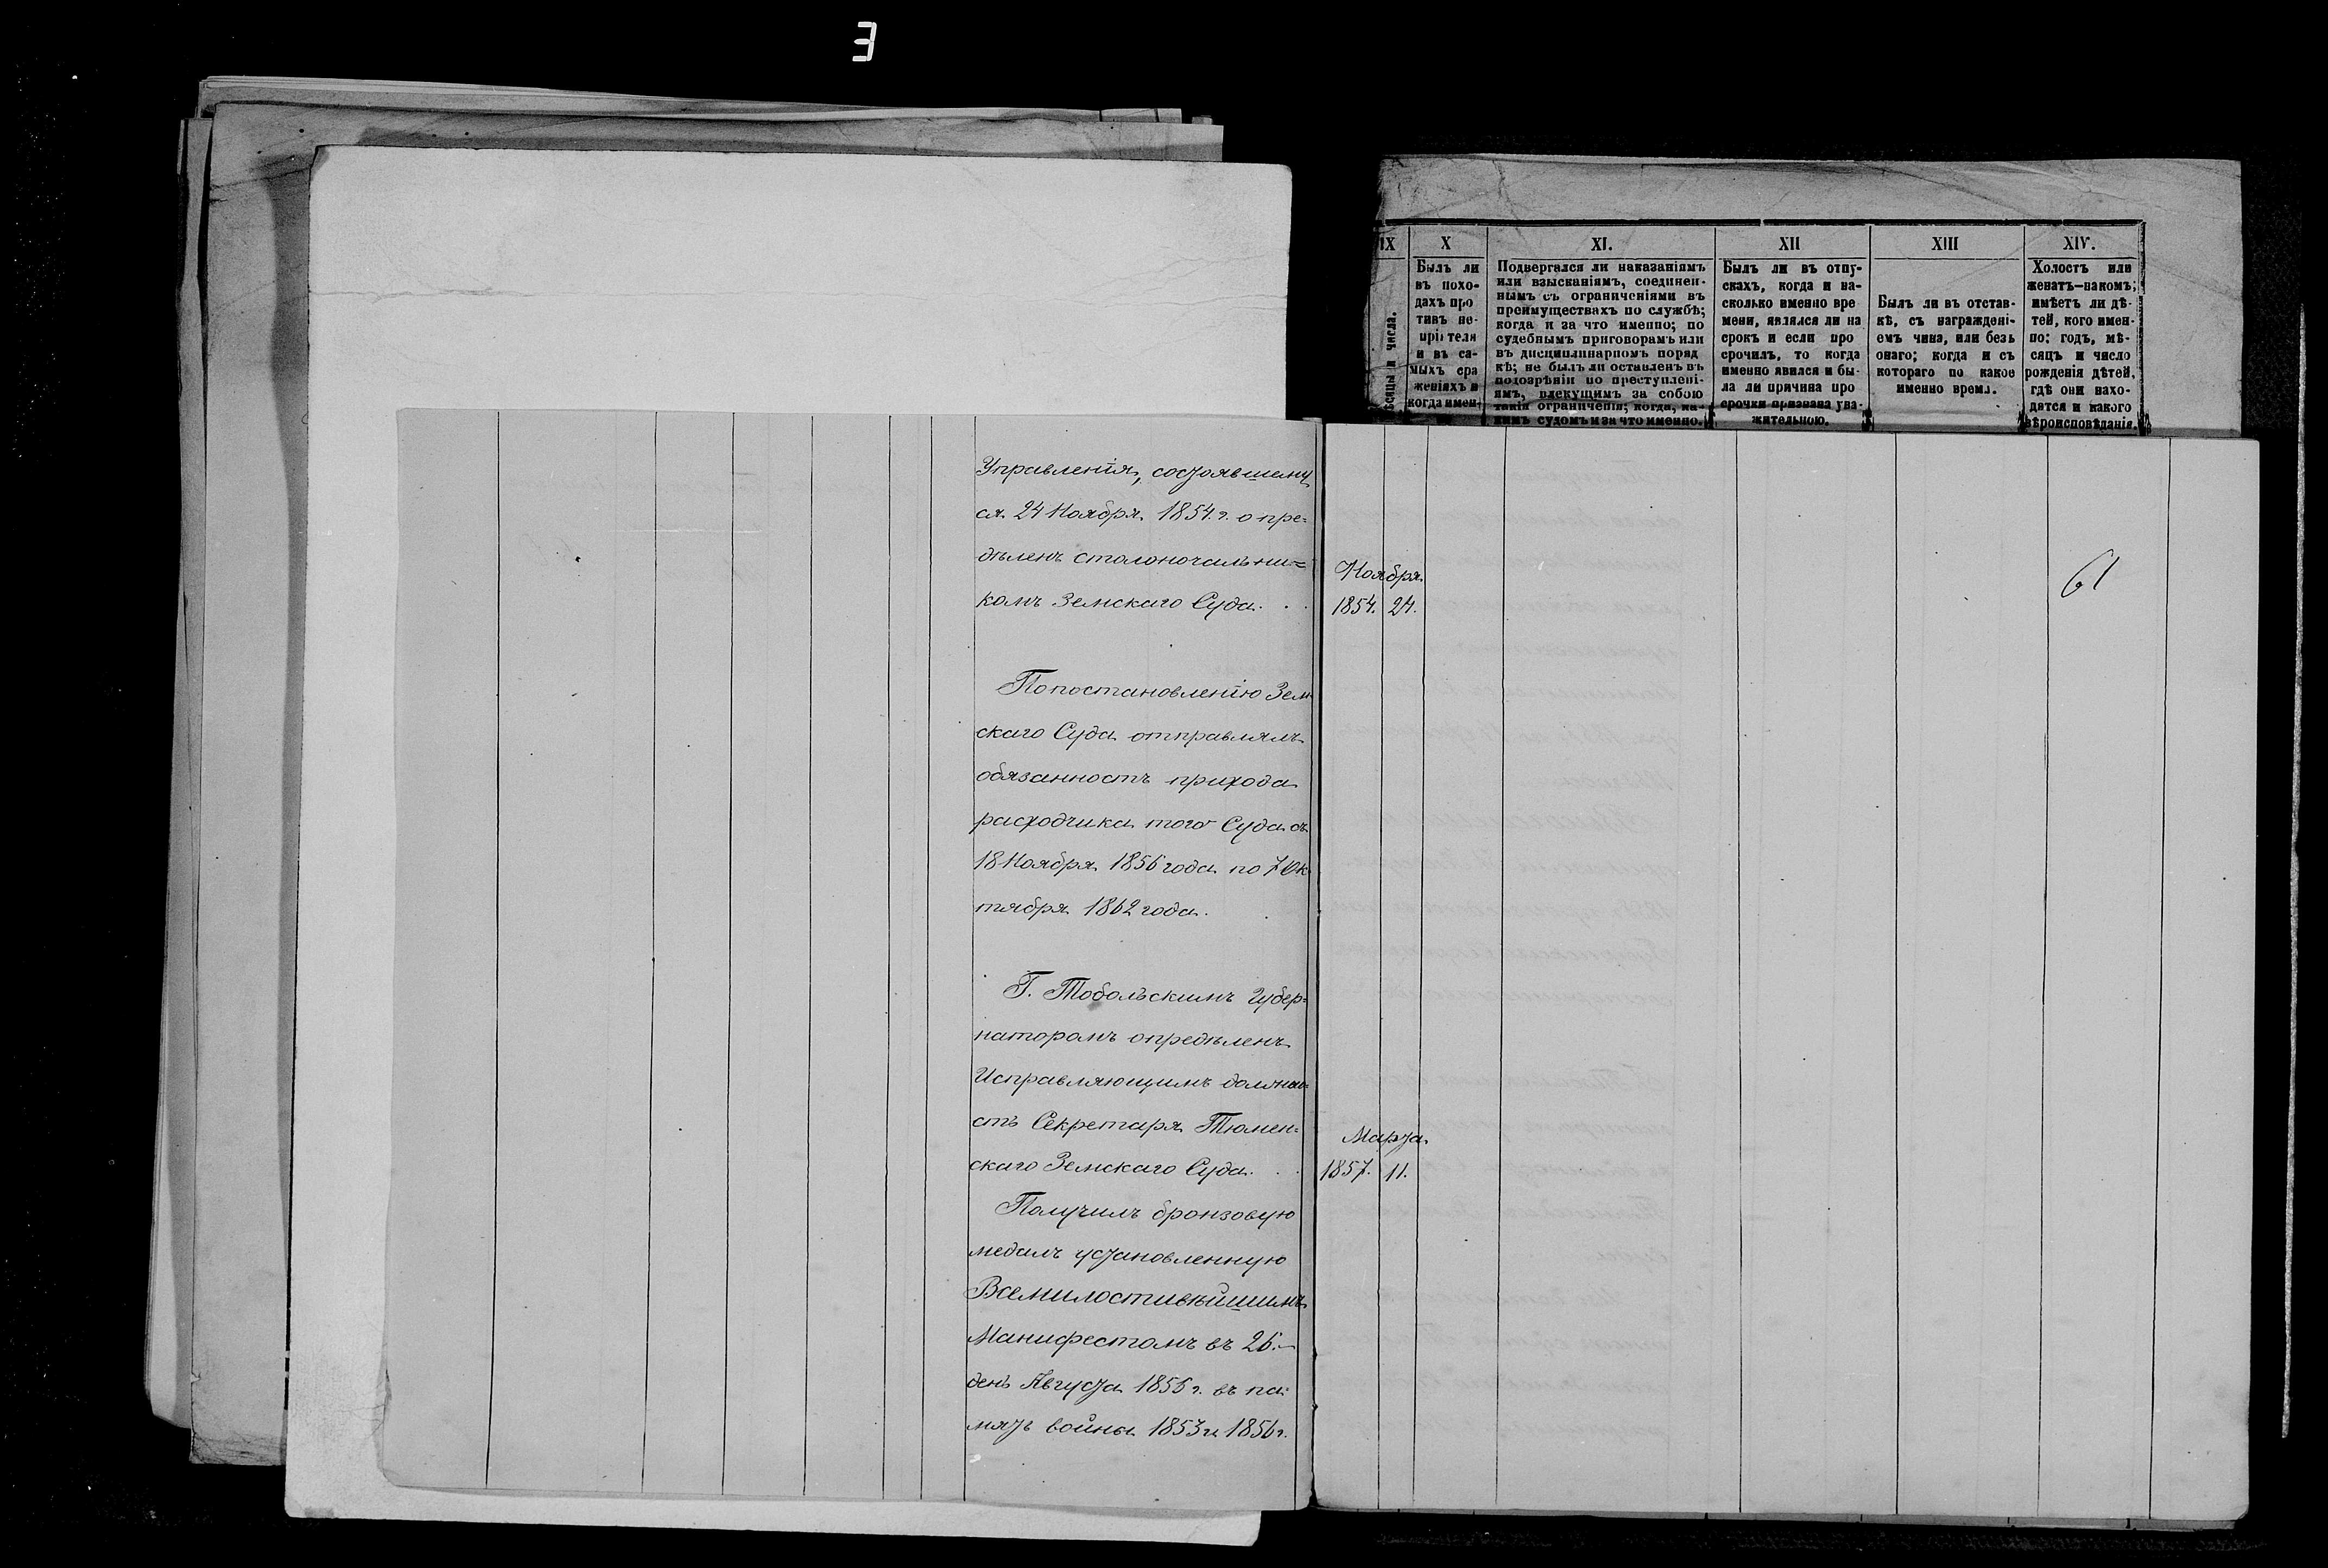 E
IX
ѣсяцы и числа.
X
Былъ ли
въ похо-
дахъ про
тивъ не-
прія теля
и въ са-
мыхъ сра
женіяхъ и
когда имен-
XI.
Подвергался ли наказаніямъ
или взысканіямъ, соединен-
нымъ съ ограниченіями въ
преимуществахъ по службѣ;
когда и за что именно; по
судебнымъ приговорамъ или
въ дисциплинарномъ поряд
кѣ; не былъ ли оставленъ въ
подозрѣніи по преступлені-
ямъ, влекущимъ за собою
такія ограниченія; когда, ка-
кимъ судомъ и за что именно.
XII
Былъ ли въ отпу-
скахъ, когда и на-
сколько именно вре
мени, являлся ли на
срокъ и если про
срочилъ, то когда
именно явился и бы-
ла ли причина про
срочки признана ува-
жительною.
XIII
Былъ ли въ отстав-
кѣ, съ награжденi-
емъ чина, или безъ
онаго; когда и съ
котораго по какое
именно время.
XIV.
Холостъ или
женатъ—на комъ;
имѣетъ ли дѣ-
тей, кого имен-
но; годъ, мѣ-
сяцъ и число
рожденія дѣтей,
гдѣ они нахо-
дятся и какого
вѣроисповѣданія.
Управленія, состоявшему
ся 24 Ноября 1854 г. опре=
дѣленъ столоначальни=
комъ Земскаго Суда. . .
Ноября
1854. 24.
61
По постановленію Зем
скаго Суда отправлялъ
обязанность прихода
расходчика того Суда съ
18 Ноября 1856 года по 7 Ок
тября 1862 года.
Г. Тобольскимъ Губер=
наторомъ опредѣленъ
Исправляющимъ должно=
сть Секретаря Тюмен=
скаго Земскаго Суда. . .
Марта
1857. 11.
Получилъ бронзовую
медаль установленную
Всемилостивѣйшимъ
Манифестомъ въ 26.–
день Августа 1856 г. въ па=
мять войны 1853 и 1856 г.